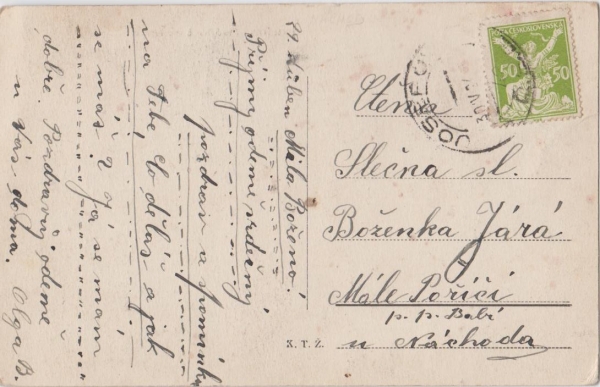 29. duben Milá Boženo!
Přijmy odemě srdečný
pozdrav a vspomínku
na Tebe, Co děláš a jak
se máš? Já se mám
dobře. Pozdravuj odemě
u Vás doma. Olga B.
ČESKOSLOVENSKÁ
50 50
JOSEFO
Ctěná
Slečna sl.
Boženka Járá
Malé Poříčí
p. p. Babí
u Náchoda
X. T. Ž.